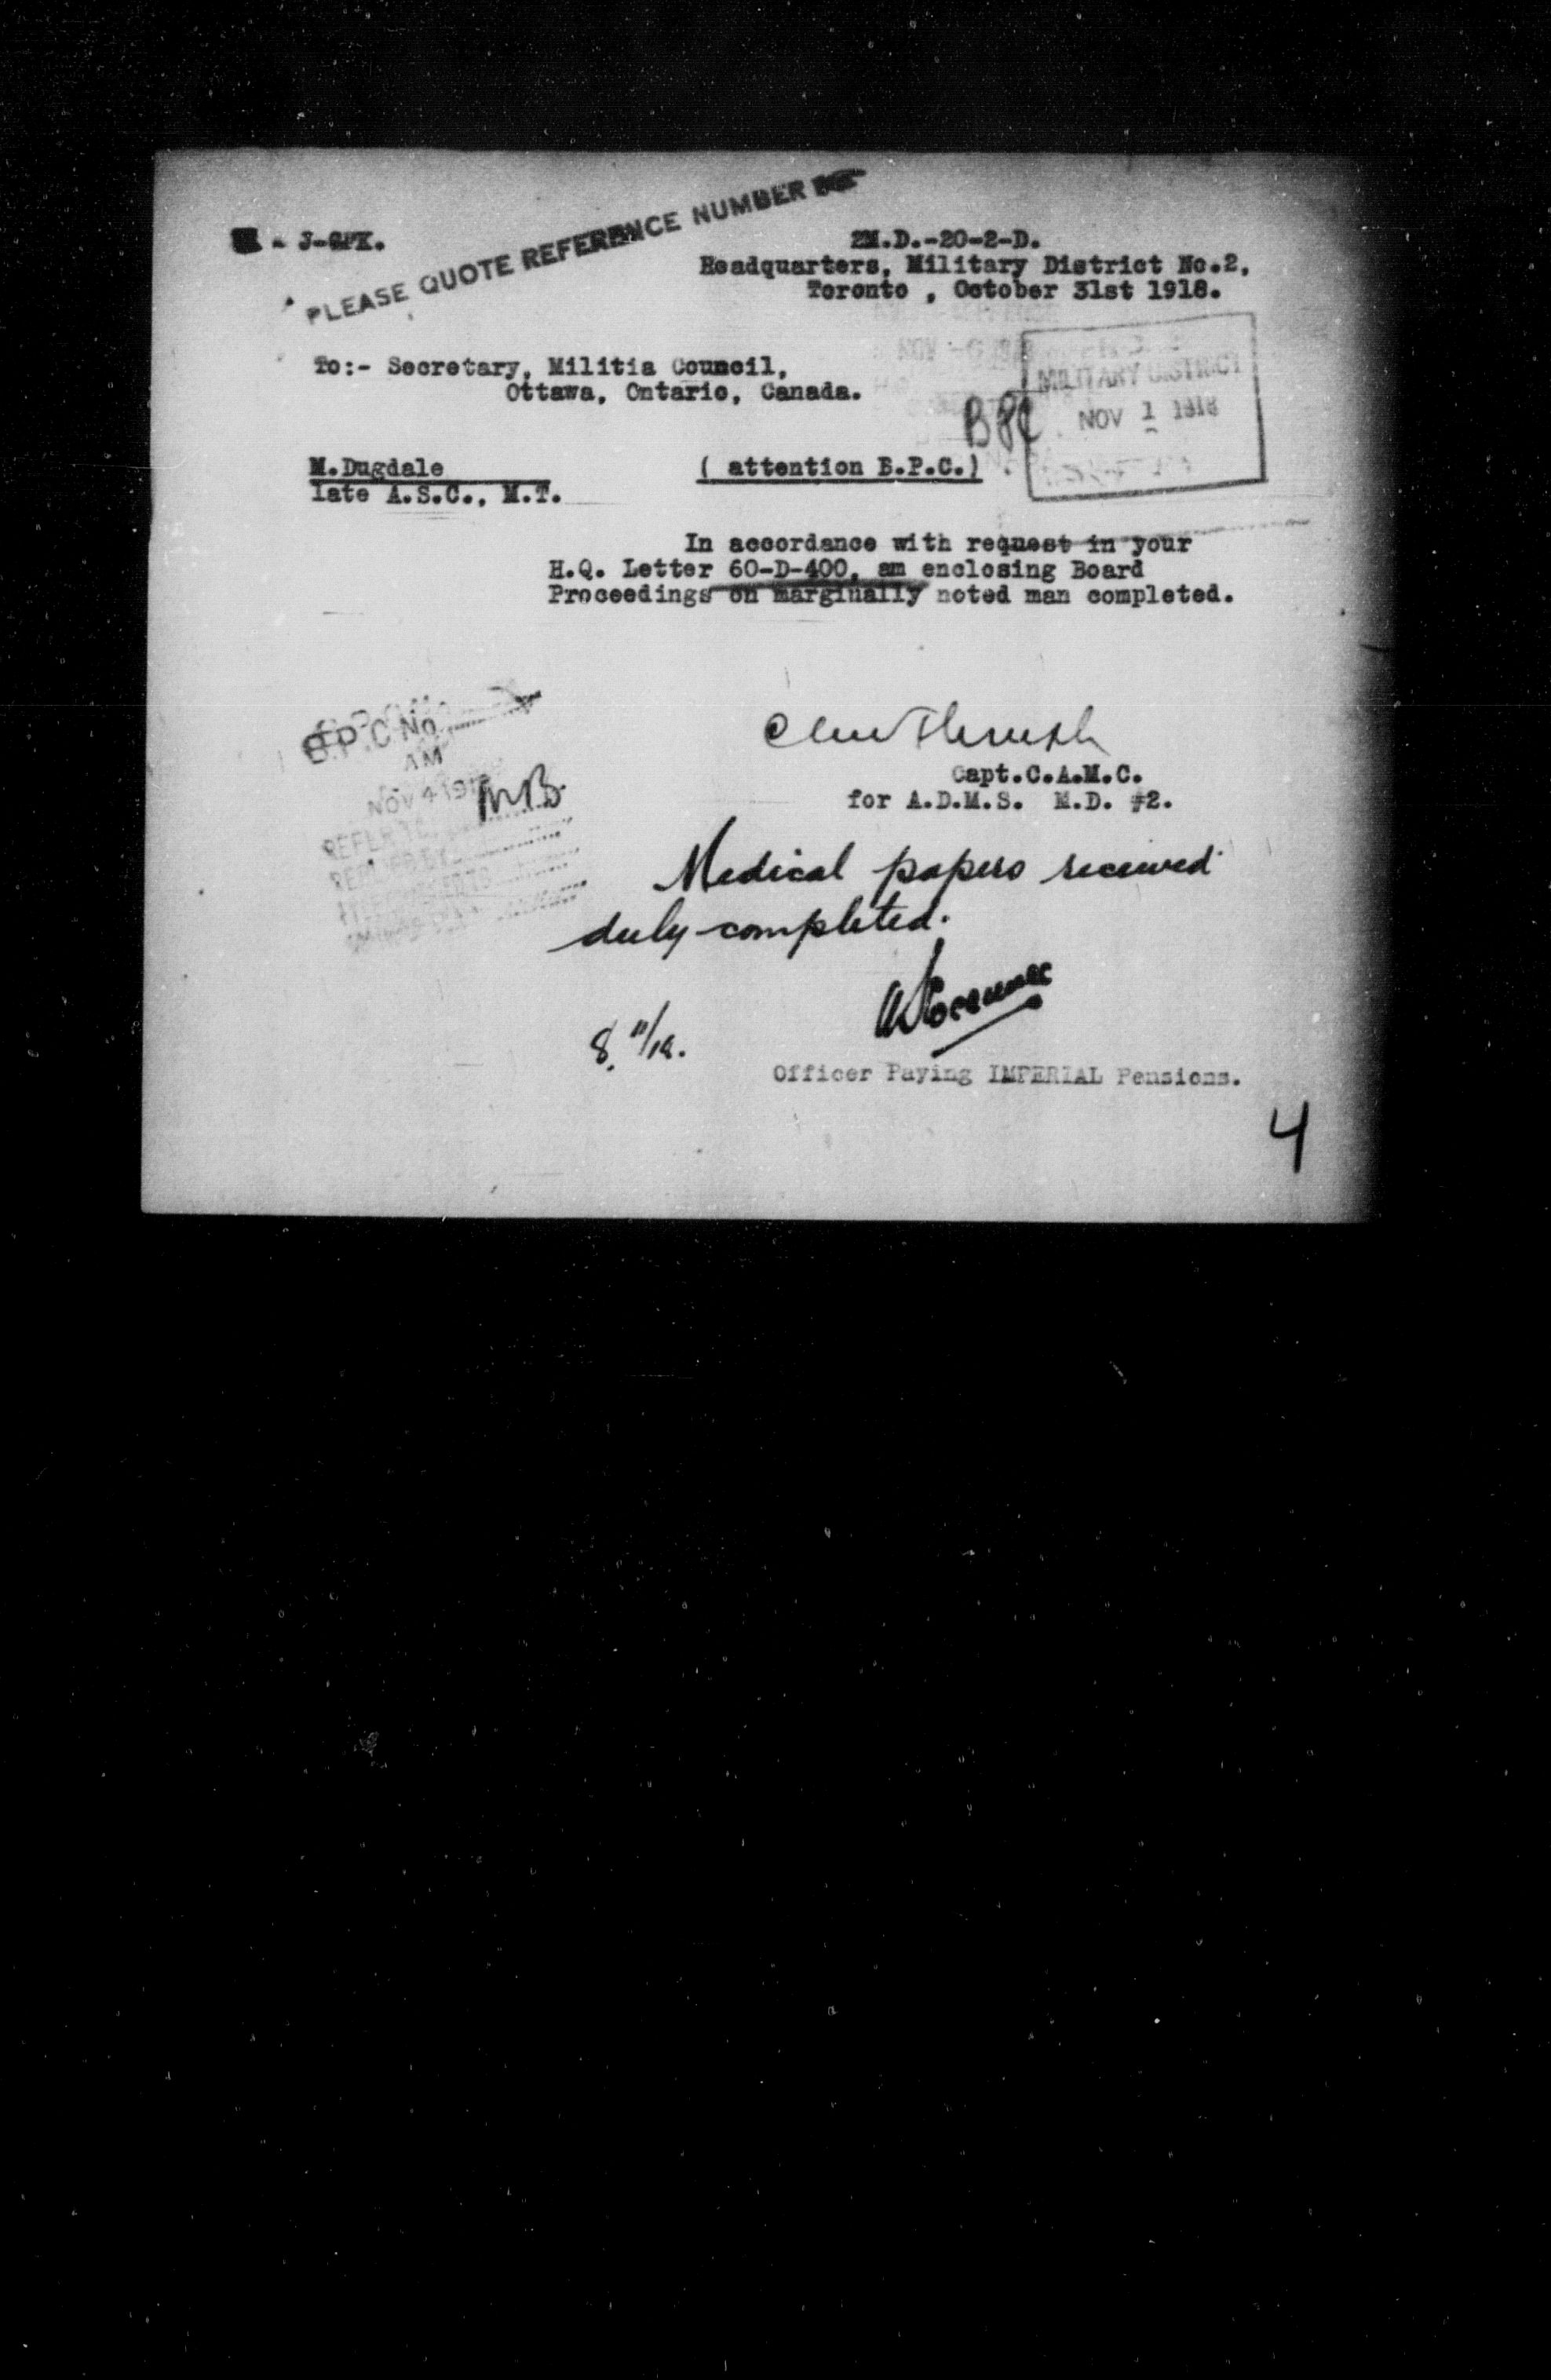 PLEASE QUOTE REFERENCE NUMBER
2M.D.-20-2-D.
Headquarters, Military District No.2,
Toronto , October 31st 1918.
To:- Secretary, Militia Council,
Ottawa, Ontario, Canada.
MILITARY DISTRICT
NOV 1 1918
BPC
M.Dugdale
( attention B.P.C.)
late A.S.C., M.T.
In accordance with request in your
H.Q. Letter 60-D-400, am enclosing Board
Proceedings on marginally noted man completed.
B.P.C No
AM
NOV 4 191
MB
Capt.C.A.M.C.
for A.D.M.S. M.D. #2.
Medical papers received
duly completed.
8 11/18.
Officer Paying IMPERIAL Pensions.
4